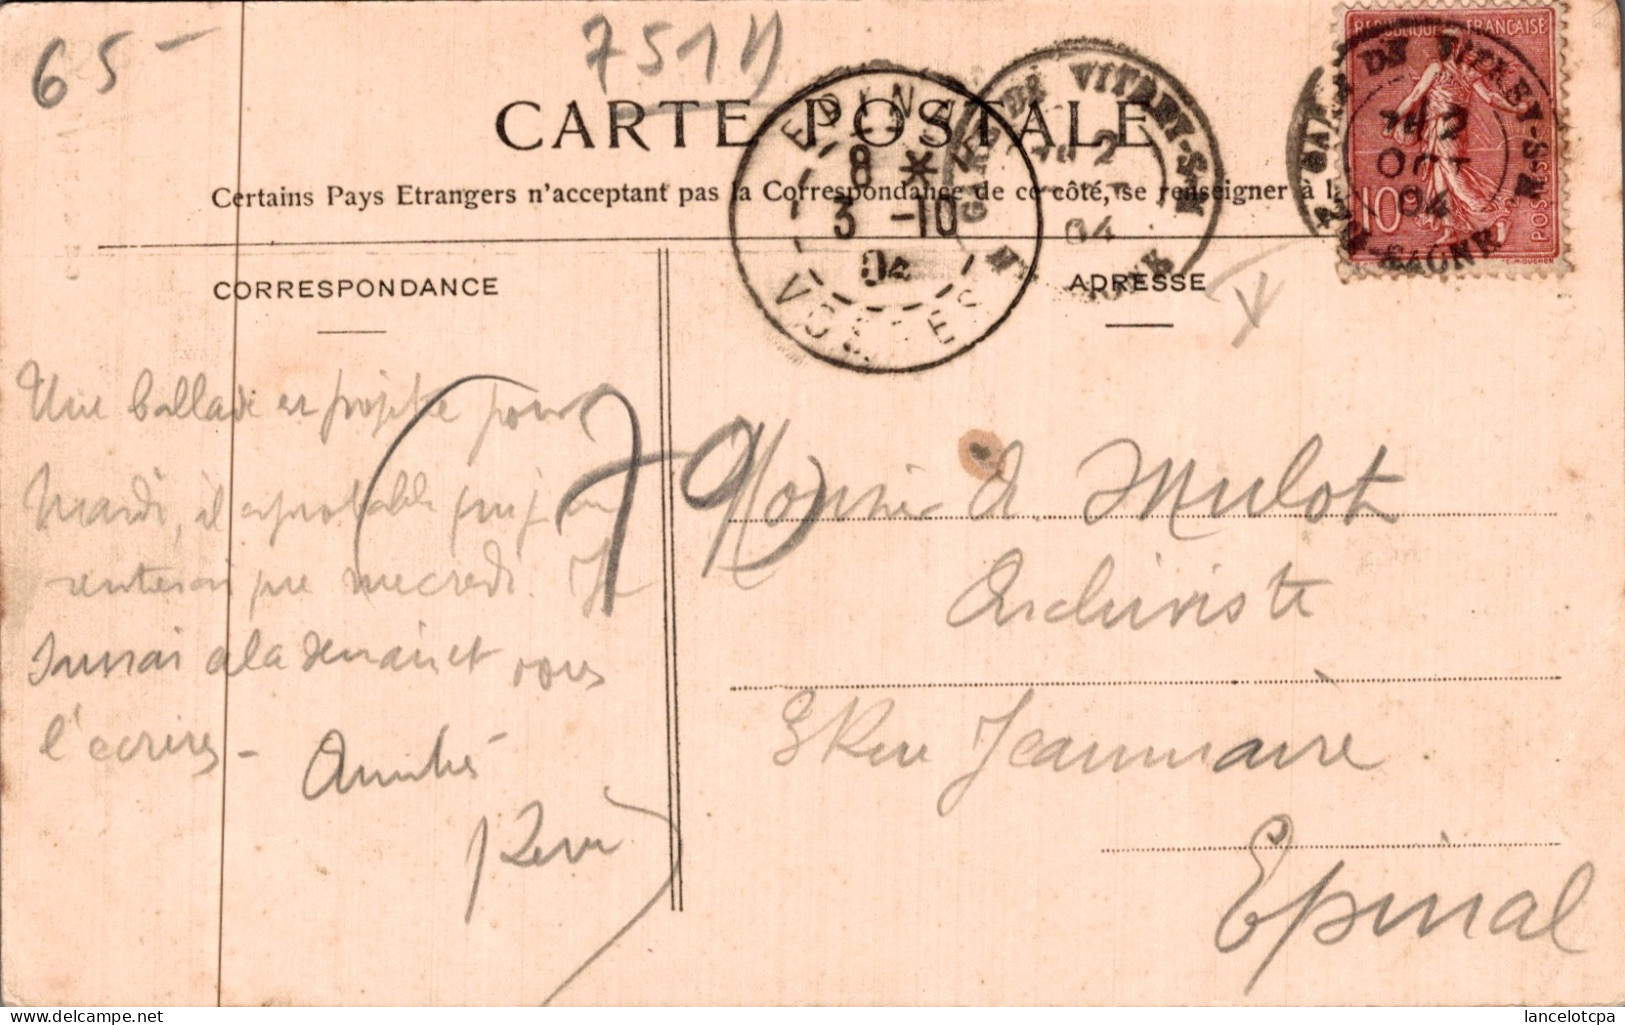 65 -
751
CARTE POSTALE
Certains Pays Etrangers n'acceptant pas la Correspondance de ce côté, se renseigner à la
REPUBLIQUE FRANÇAISE
10
POSTES
EPINAL
8 *
3 -10
04
VOSGES
GARE DE VITREY-S-M
2
04
GARE DE VITREY-S-M
2
OCT
04
HTE-SAONE
CORRESPONDANCE
ADRESSE
Une ballade est projetée pour
Mardi, il est probable que je ne
rentrerai que mercredi. Je
serai à la
l'écrirez -
Amitiés
René
(79)
Monsieur A. Mulot
Archiviste
8 Rue Jeanmaire
Epinal
lancelotcpa